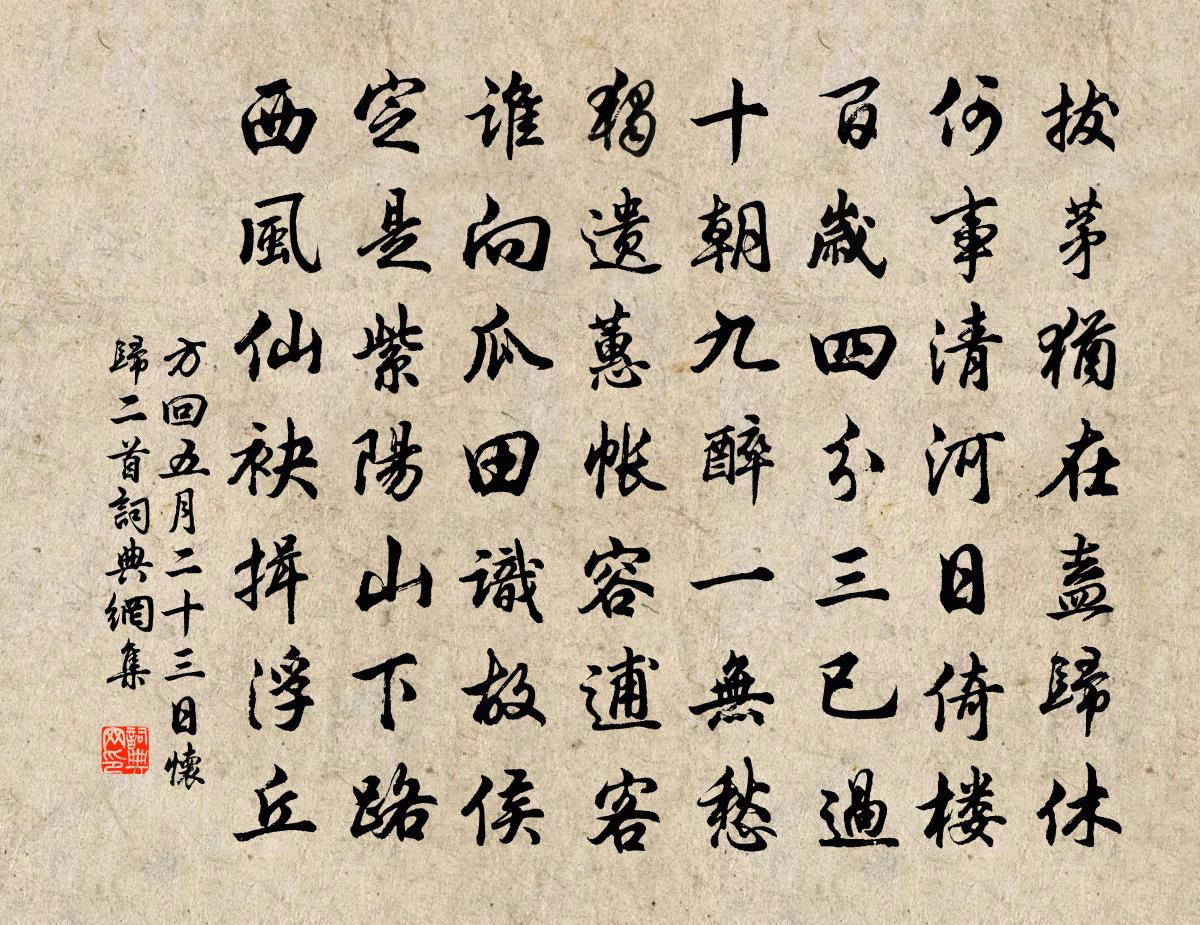 拔茅猶在盍歸休
何事清河日倚楼
百歲四分三已過
十朝九醉一無愁
獨遺蕙帳容逋客
誰向瓜田識故侯
定是紫陽山下路
西風仙袂揖浮丘
方回五月二十三日懷
歸二首詞典網集
詞典
网印